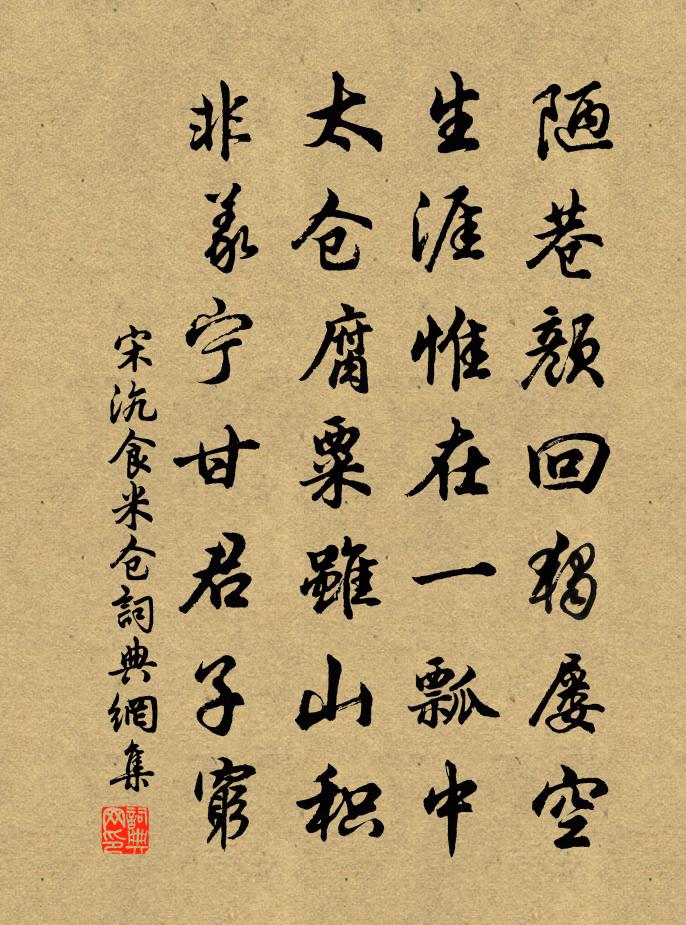 陋巷顔回獨屢空
生涯惟在一瓢中
太仓腐粟雖山积
非義宁甘君子窮
宋沉食米仓詞典網集
詞典网印